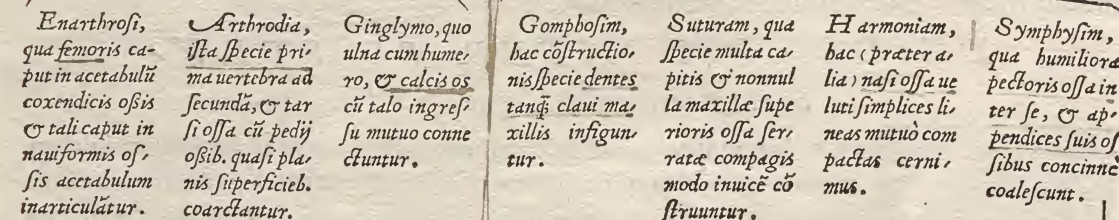 Enarthroſi,
qua femoris ca-
put in acetabulū
coxendicis oßis
& tali caput in
nauiformis oſ-
ſis acetabulum
inarticulātur.
Arthrodia,
iſta ſpecie pri-
ma uertebra ad
ſecundā, & tar
ſi oſſa cū pedij
oßib. quaſi pla-
nis ſuperficieb.
coarctantur.
Ginglymo, quo
ulna cum hume-
ro, & calcis os
cū talo ingreſ-
ſu mutuo conne
ctuntur.
Gomphoſim,
hac cōſtructio-
nis ſpecie dentes
tanq̃ claui ma-
xillis infigun-
tur.
Suturam, qua
ſpecie multa ca-
pitis & nonnul
la maxillæ ſupe
rioris oſſa ſer-
ratæ compagis
modo inuicē cō
ſtruuntur.
Harmoniam,
hac (præter a-
lia) naſi oſſa ue
luti ſimplices li-
neas mutuò com
pactas cerni-
mus.
Symphyſim,
qua humiliora
pectoris oſſa in
ter ſe, & ap-
pendices ſuis oſ
ſibus concinnè
coaleſcunt.